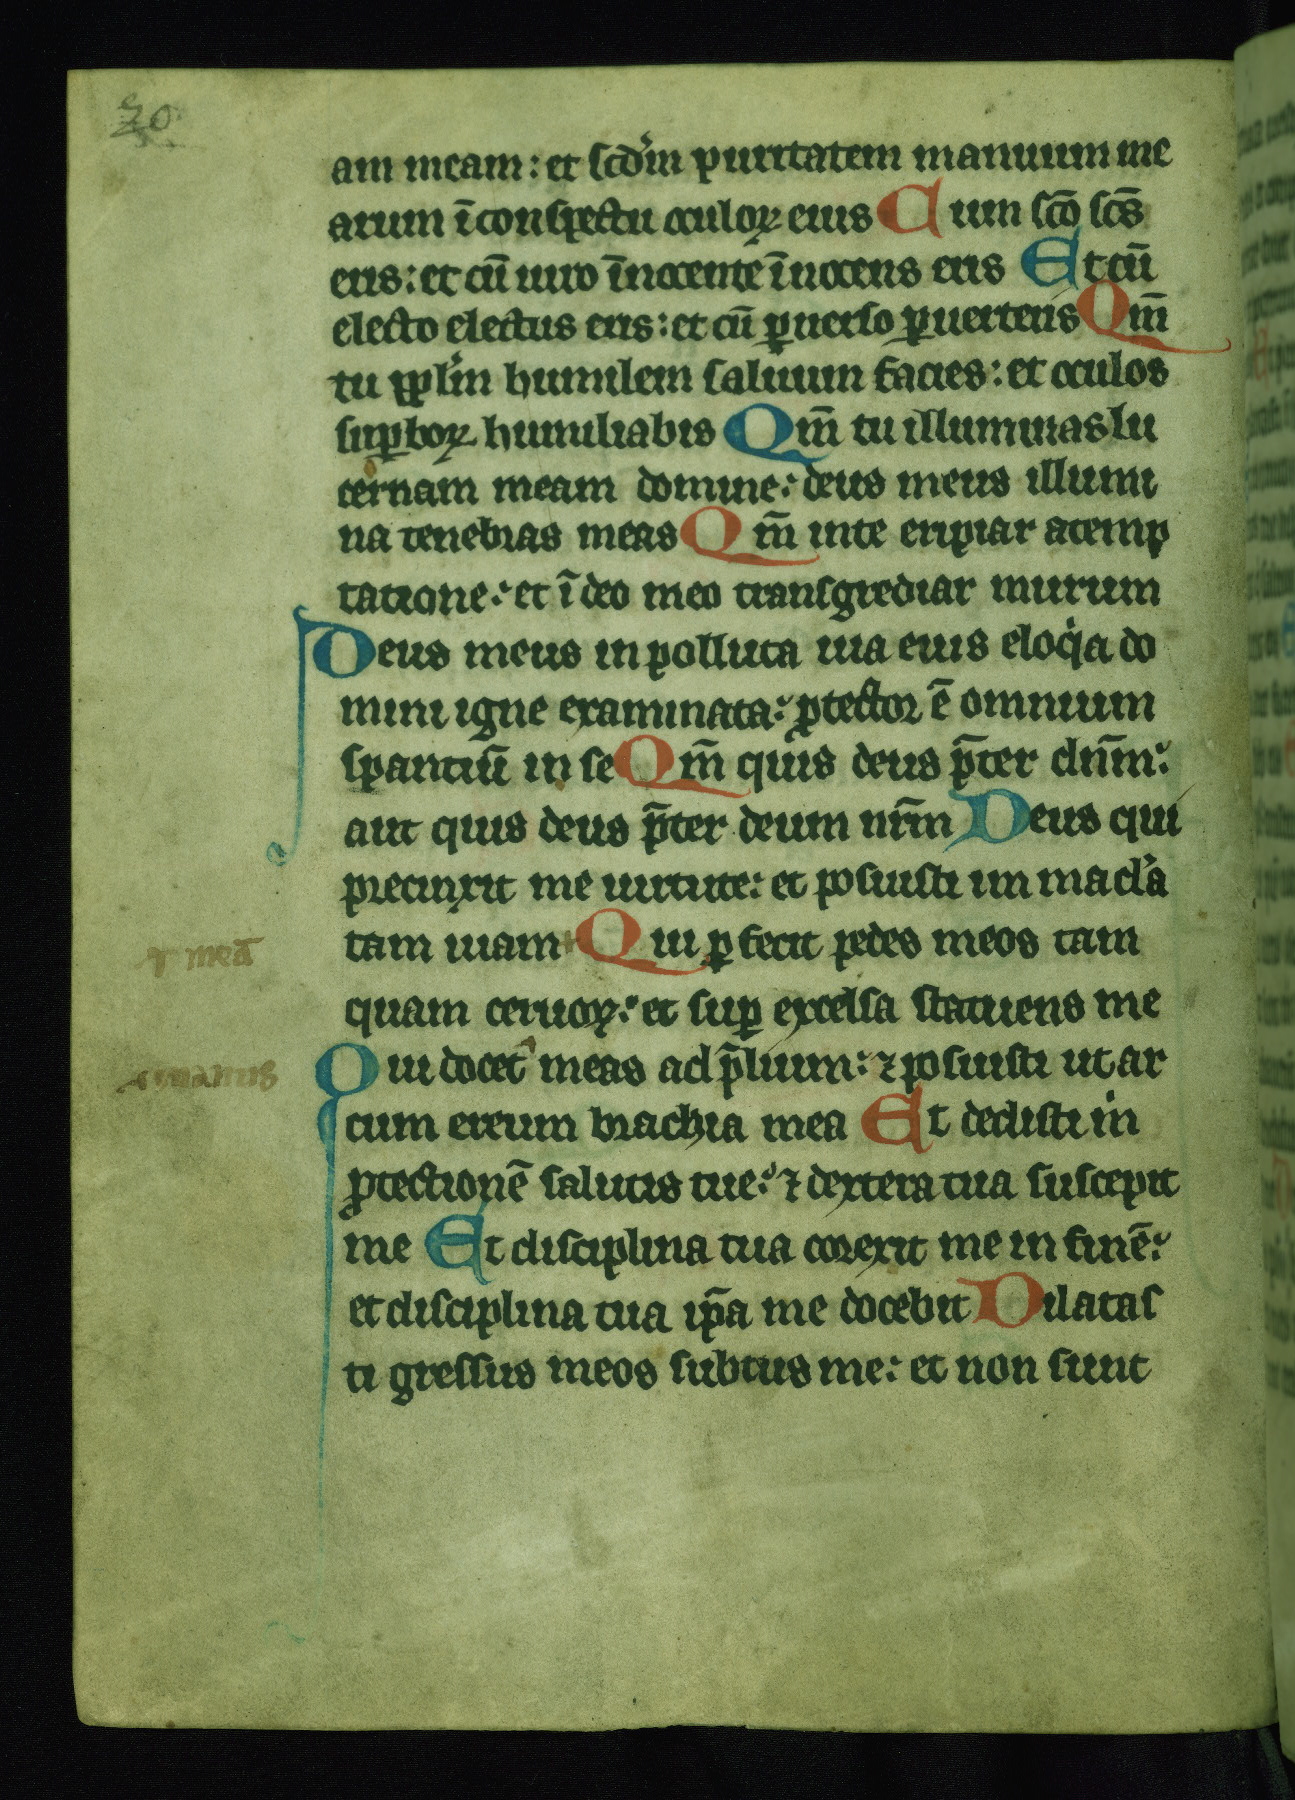 20
am meam : et scd̓m puritatem manuum me
arum ī conspectu oculoꝝ eius Cum sc̄o sc̄s
eris : et cū uiro īnocente īnocens eris Et cū
electo electus eris : et cū ꝑuerso ꝑuerteris Qm̄
tu pp̱l̓m humilem saluum facies : et oculos
suꝑboꝝ humiliabis Qm̄ tu illuminas lu
cernam meam domine : deus meus illumi
na tenebras meas Qm̄ inte eripiar atemp
tatione : et ī deo meo transgrediar murum
Deus meus inpolluta uia eius eloq̓a do
mini igne examinata : ꝓtector ē omnium
sꝑantiū in se Qm̄ quis deus p̄ter dn̄m :
aut quis deus p̄ter deum nr̄m Deus qui
precinxit me uirtute : et posuisti inmacl̓a
tam uiam Qui ꝑfecit pedes meos tam
⁊ meā
quam ceruoꝝ : et suꝑ excelsa statuens me
Qui docet meas ad p̄lium : ⁊ posuisti ut ar
manus
cum ereum brachia mea Et dedisti in
ꝓtectionē salutis tue : ⁊ dextera tua suscepit
me Et disciplina tua correxit me in finē :
et disciplina tua ip̄a me docebit Dilatas
ti gressus meos subtus me : et non sunt